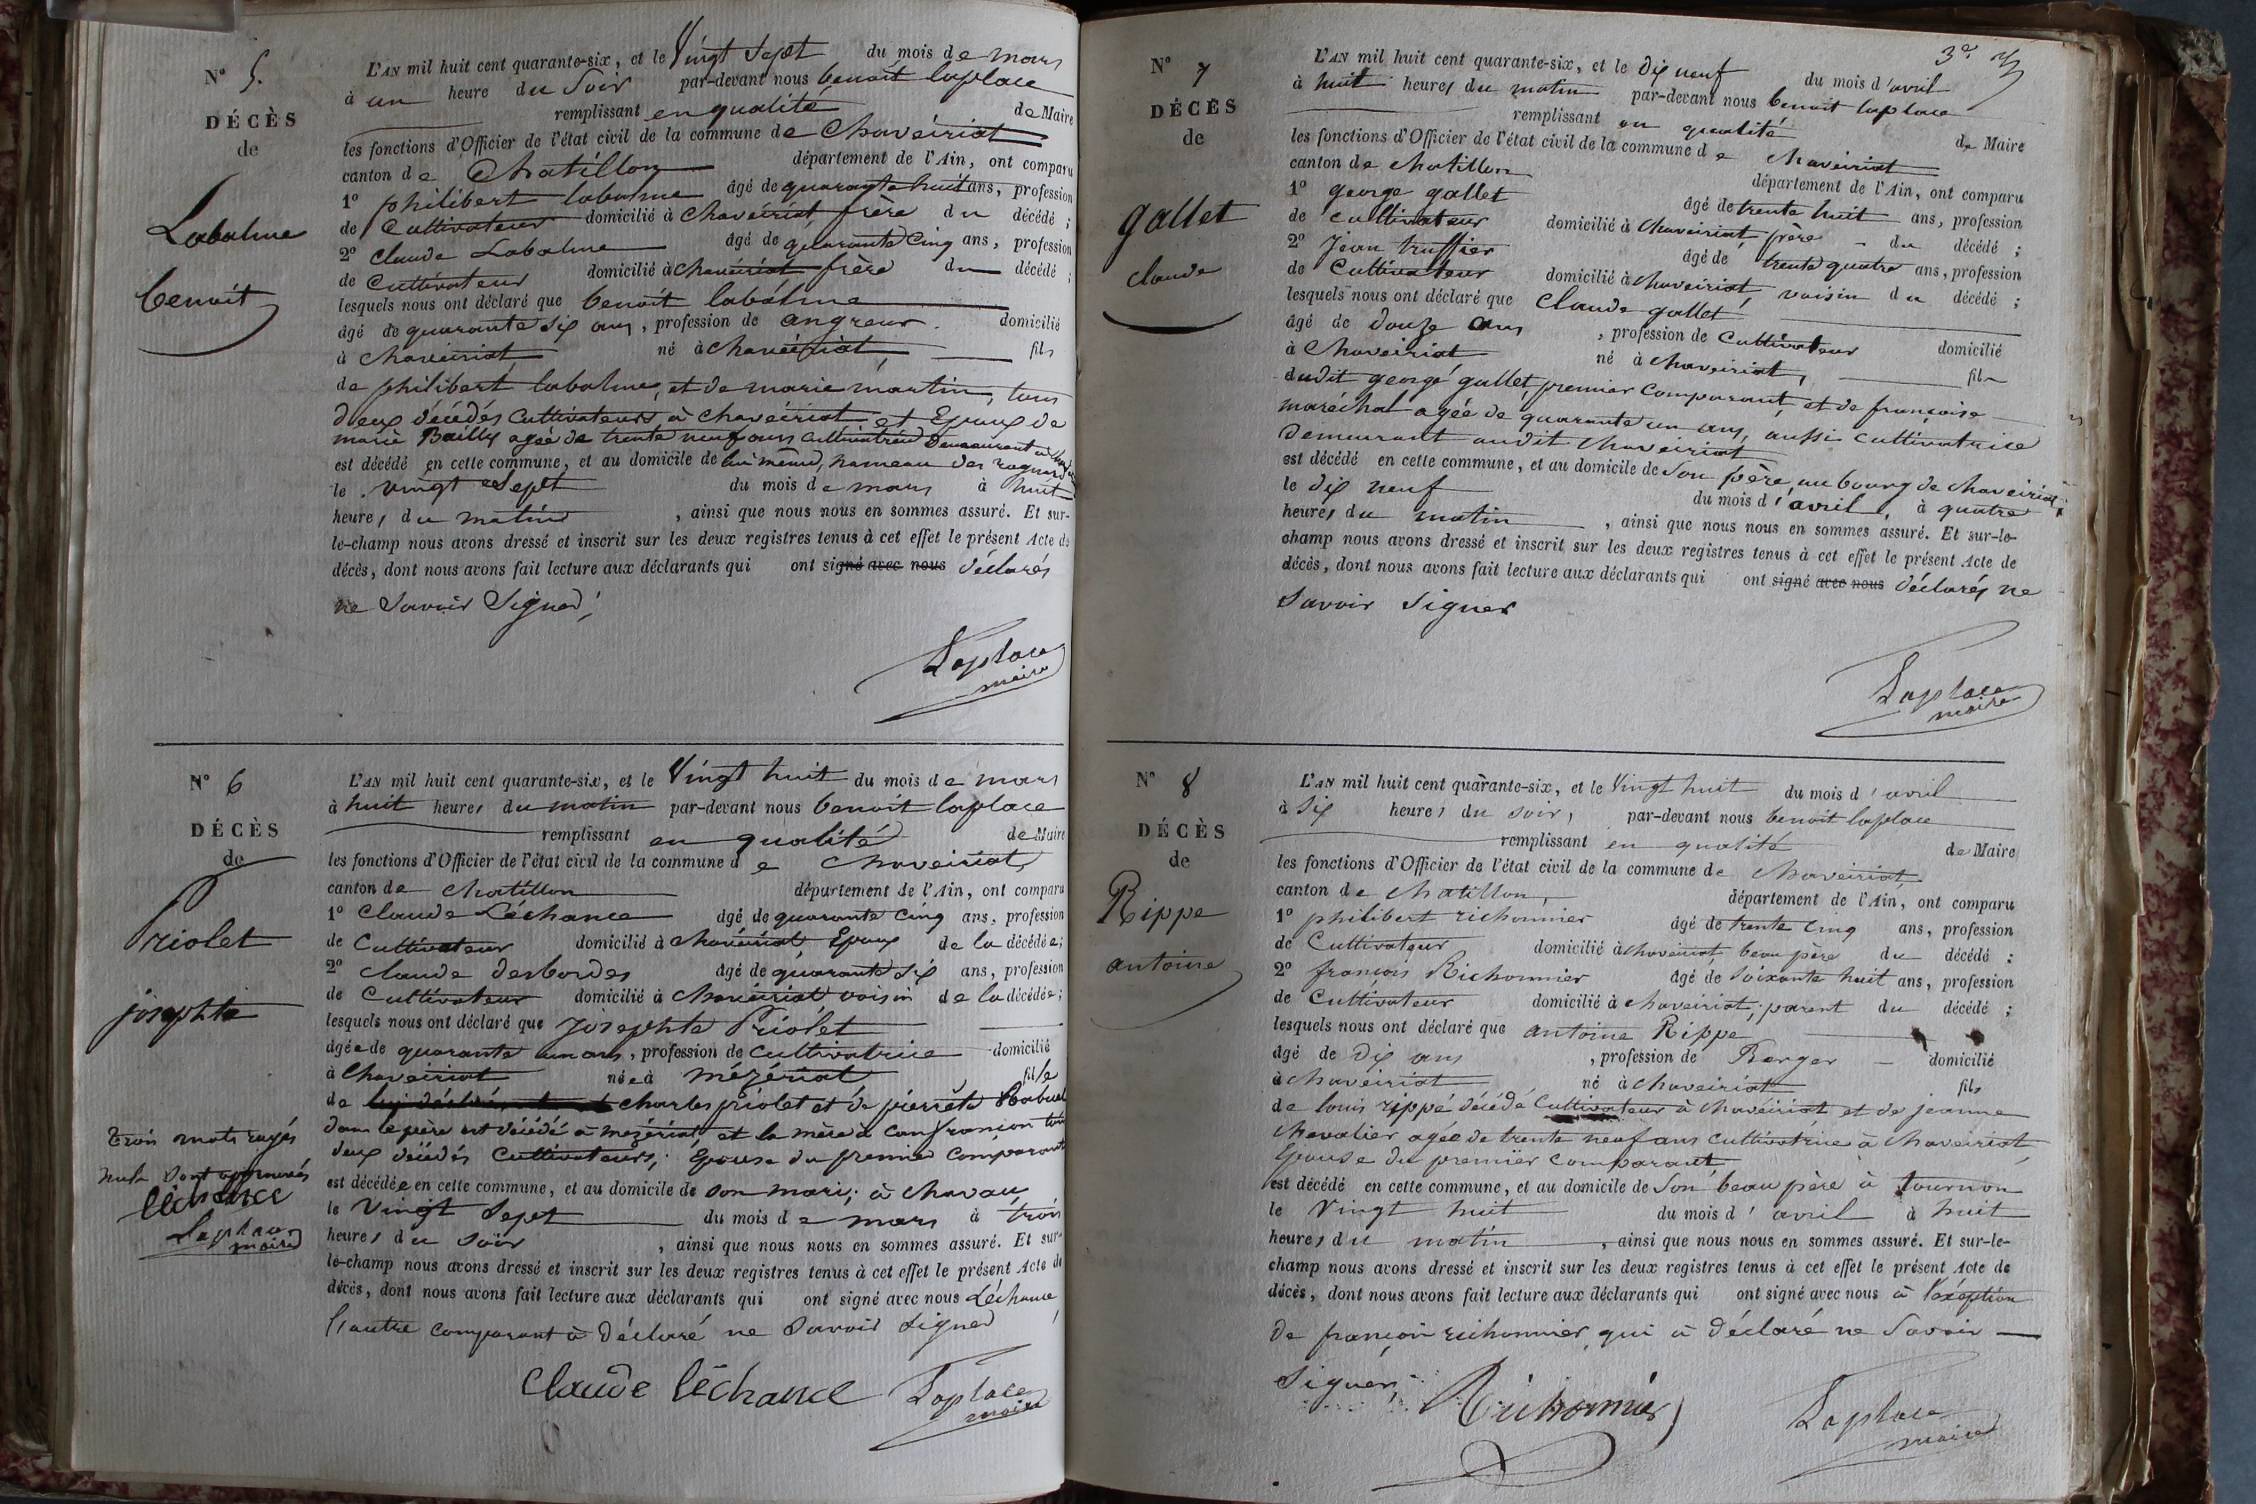 N° 5.
DÉCÈS
de
Labalme
benoit
L'AN mil huit cent quarante-six, et le Vingt Sept du mois de mars
à un heure du Soir par-devant nous benoit laplace
remplissant en qualité de Maire
les fonctions d'Officier de l'état civil de la commune de Chaveiriat
canton de Chatillon département de l'Ain, ont comparu
1° philibert labalme âgé de quarante huit ans, profession
de Cultivateur domicilié à Chaveiriat frère du décédé ;
2° Claude Labalme âgé de quarante Cinq ans, profession
de Cultivateur domicilié à Chaveiriat frère du décédé ;
lesquels nous ont déclaré que benoit labalme
âgé de quarante Six ans, profession de angreur. domicilié
à Chaveiriat né à Chaveiriat, fils
de philibert labalme, et de marie martin, tous
deux décédés Cultivateurs à Chaveiriat et Epoux de
marie Bailly agée de trente neuf ans Cultivatrice Demeurant à
est décédé en cette commune, et au domicile de lui même, hameau des
le vingt Sept du mois de mars à huit
heures du matin , ainsi que nous nous en sommes assuré. Et sur-
le-champ nous avons dressé et inscrit sur les deux registres tenus à cet effet le présent Acte de
décès, dont nous avons fait lecture aux déclarants qui ont signé avec nous déclarés
ne Savoir Signer,
Laplace
maire
N° 6
DÉCÈS
de
Priolet
josephte
Trois mots rayés
nuls sont approuvés
léchance
Laplace
maire
L'AN mil huit cent quarante-six, et le Vingt huit du mois de mars
à huit heures du matin par-devant nous benoit laplace
remplissant en qualité de Maire
les fonctions d'Officier de l'état civil de la commune de Chaveiriat,
canton de Chatillon département de l'Ain, ont comparu
1° Claude Léchance âgé de quarante Cinq ans, profession
de Cultivateur domicilié à Chaveiriat, Epoux de la décédée;
2° claude desbordes âgé de quarante Six ans, profession
de Cultivateur domicilié à Chaveiriat voisin de la décédée;
lesquels nous ont déclaré que josephte Priolet
âgée de quarante un ans, profession de Cultivatrice domicilié
à Chaveiriat née à mézériat fille
de charles priolet et de pierrete
dont le père est décédé à mezériat et la mère à Confrancion tous
deux décédés Cultivateurs; Epouse du premier Comparant
est décédée en cette commune, et au domicile de son mari; à chavau
le Vingt Sept du mois de mars à trois
heures du Soir , ainsi que nous nous en sommes assuré. Et sur-
le-champ nous avons dressé et inscrit sur les deux registres tenus à cet effet le présent Acte de
décès, dont nous avons fait lecture aux déclarants qui ont signé avec nous Léchance
l'autre comparant à Déclaré ne Savoir signer
Claude léchance
Laplace
maire
3e
N° 7
DÉCÈS
de
gallet
claude
L'AN mil huit cent quarante-six, et le dix neuf du mois d'avril
à huit heures du matin par-devant nous benoit laplace
remplissant en qualité de Maire
les fonctions d'Officier de l'état civil de la commune de chaveiriat
canton de chatillon département de l'Ain, ont comparu
1° george gallet âgé de trente huit ans, profession
de cultivateur domicilié à Chaveiriat père du décédé ;
2° Jean truffier âgé de trente quatre ans, profession
de Cultivateur domicilié à chaveiriat, voisin du décédé ;
lesquels nous ont déclaré que Claude gallet,
âgé de douze ans , profession de Cultivateur domicilié
à Chaveiriat né à chaveiriat, fils
dudit george gallet, premier Comparant, et de françoise
maréchal agée de quarante un ans, aussi Cultivatrice
Demeurant audit chaveiriat
est décédé en cette commune, et au domicile de Son père, au bourg de chaveiriat
le dix neuf du mois d'avril, à quatre
heures du matin , ainsi que nous nous en sommes assuré. Et sur-le-
champ nous avons dressé et inscrit sur les deux registres tenus à cet effet le présent Acte de
décès, dont nous avons fait lecture aux déclarants qui ont signé avec nous déclarés ne
Savoir signer
Laplace
maire
N° 8
DÉCÈS
de
Rippe
antoine
L'AN mil huit cent quarante-six, et le Vingt huit du mois d'avril
à Six heures du soir, par-devant nous benoit laplace
remplissant en qualité de Maire
les fonctions d'Officier de l'état civil de la commune de chaveiriat,
canton de chatillon, département de l'Ain, ont comparu
1° philibert richonnier âgé de trente cinq ans, profession
de Cultivateur domicilié à chaveiriat beau père du décédé ;
2° françois Richonnier âgé de Soixante huit ans, profession
de Cultivateur domicilié à chaveiriat; parent du décédé ;
lesquels nous ont déclaré que antoine Rippe
âgé de Dix ans , profession de Berger domicilié
à chaveiriat né à chaveiriat fils
de louis rippe décédé Cultivateur à Chaveiriat et de jeanne
chevalier agée de trente neuf ans Cultivatrice à Chaveiriat,
Epouse du premier comparant
est décédé en cette commune, et au domicile de Son beau père à tournon
le Vingt huit du mois d'avril à huit
heures du matin , ainsi que nous nous en sommes assuré. Et sur-le-
champ nous avons dressé et inscrit sur les deux registres tenus à cet effet le présent Acte de
décès, dont nous avons fait lecture aux déclarants qui ont signé avec nous à l'exéption
de françois richonnier, qui à déclaré ne Savoir
Signer,
Richonnier
Laplace
maire